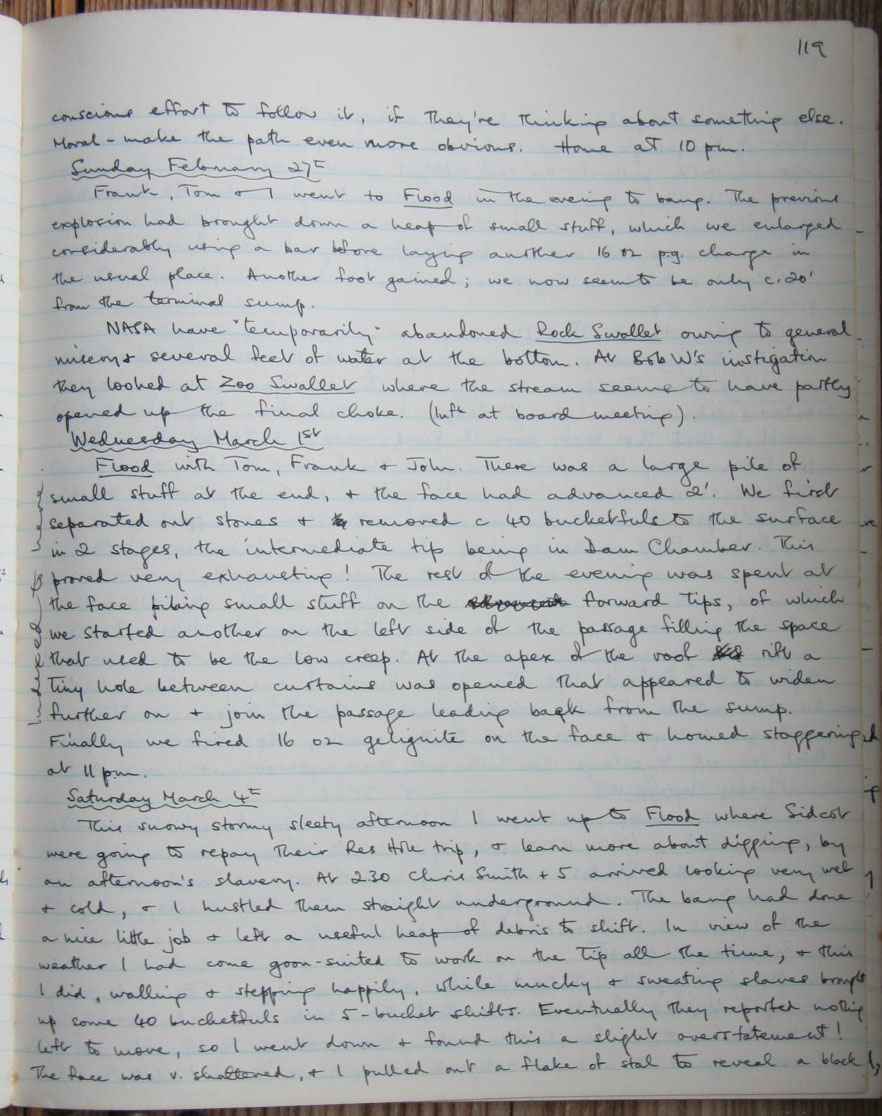 119
conscious effort to follow it, if they're thinking about something else.
Moral - make the path even more obvious. Home at 10 pm.
Sunday February 27th
Frank, Tom & I went to Flood in the evening to bang. The previous
explosion had brought down a heap of small stuff, which we enlarged
considerably using a bar before laying another 16 oz p.g. charge in
the usual place. Another foot gained; we now seem to be only c. 20'
from the terminal sump.
NASA have "temporarily" abandoned Rock Swallet owing to general
misery & several feet of water at the bottom. At Bob W's instigation
they looked at Zoo Swallet where the stream seems to have partly
opened up the final choke. (Inf. at board meeting).
Wednesday March 1st
Flood with Tom, Frank & John. There was a large pile of
small stuff at the end, & the face had advanced 2'. We first
separated out stones & removed c 40 bucketfuls to the surface
in 2 stages, the intermediate tip being in Dam Chamber. This
proved very exhausting! The rest of the evening was spent at
the face piling small stuff on the forward tips, of which
we started another on the left side of the passage filling the space
that used to be the low creep. At the apex of the roof rift a
tiny hole between curtains was opened that appeared to widen
further on & join the passage leading back from the sump.
Finally we fired 16 oz gelignite on the face & homed staggering
at 11 pm.
Saturday March 4th
This snowy stormy sleety afternoon I went up to Flood where Sidcot
were going to repay their Res Hole trip, & learn more about digging, by
an afternoon's slavery. At 2.30 Chris Smith + 5 arrived looking very wet
& cold, & I hustled them straight underground. The bang had done
a nice little job & left a useful heap of debris to shift. In view of the
weather I had come goon-suited to work on the tip all the time, & this
I did, walling & stepping happily, while mucky & sweating slaves brought
up some 40 bucketfuls in 5-bucket shifts. Eventually they reported nothing
left to move, so I went down & found this a slight overstatement!
The face was v. shattered, & I pulled out a flake of stal to reveal a black